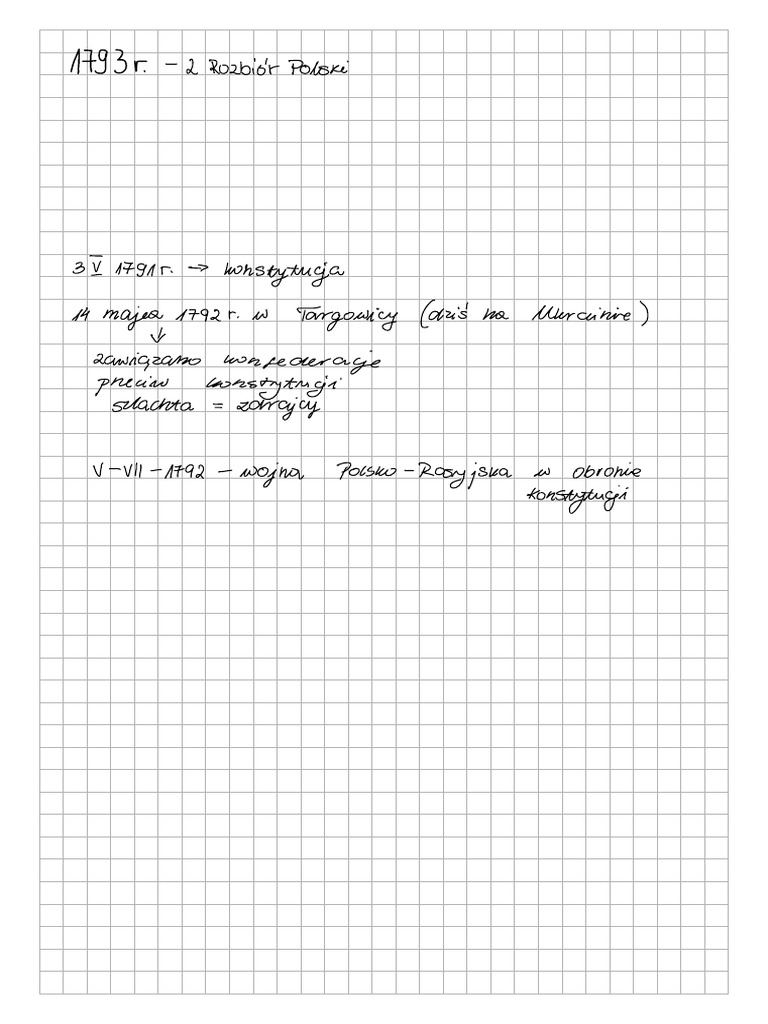 1793 r. – 2 Rozbiór Polski
3 V 1791 r. → konstytucja
14 maja 1792 r. w Targowicy (dziś na Ukrainie)
↓
zawiązano konfederacje
przeciw konstytucji
szlachta = zdrajcy
V–VII–1792 – wojna Polsko–Rosyjska w obronie
konstytucji